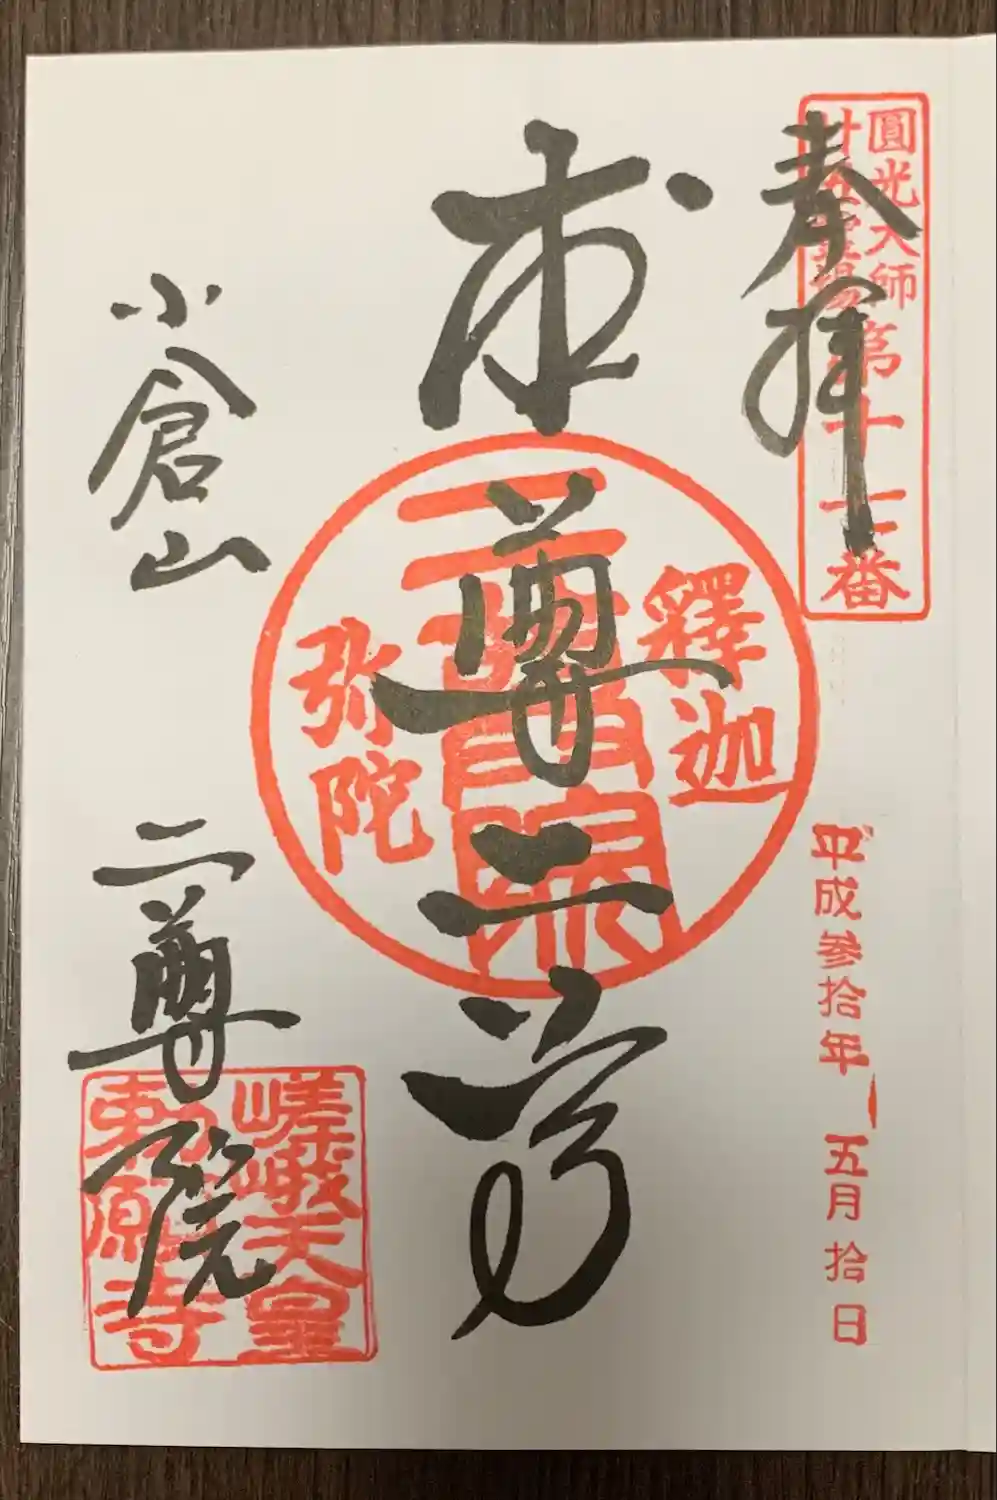 奉拝
圓光大師
廿五霊場
第十七番
平成参拾年 五月拾日
本尊二尊
釋迦
二尊院
弥陀
小倉山 二尊院
嵯峨天皇
勅願寺